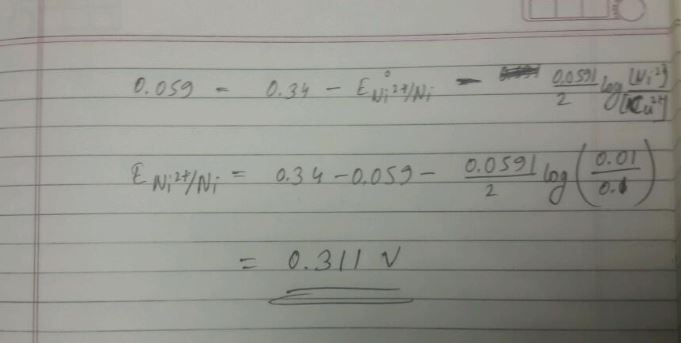 0.059 = 0.34 - E°Ni²⁺/Ni - 0.0591/2 log [Ni²⁺]/[Cu²⁺]
E Ni²⁺/Ni = 0.34 - 0.059 - 0.0591/2 log (0.01/0.1)
= 0.311 V